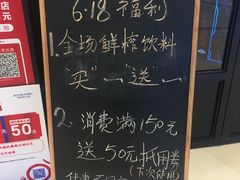 6·18 福利
1.全场鲜榨饮料
"买"一"送"一
2.消费满150元
送50元抵用券
(下次使用)
50元